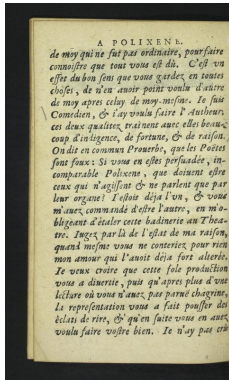 A POLIXENE.
de moy qui ne fut pas ordinaire, pour faire
connoistre que tout vous est dû. C'est vn
effet du bon sens que vous gardez en toutes
choses, de n'en auoir point voulu d'autre
de moy apres celuy de moy-mesme. Ie suis
Comedien, & i'ay voulu faire l'Autheur,
ces deux qualitez trainent auec elles beau-
coup d'intligence, de fortune, & de raison.
On dit en commun Prouerbe, que les Poëtes
sont foux : Si vous en estes persuadée, in-
comparable Polixene, que doiuent estre
ceux qui n'agissent & ne parlent que par
leur organe ? I'estois déja l'vn, & vous
m'auez commandé d'estre l'autre, en m'o-
bligeant d'étaler cette badinerie au Thea-
tre. Iugez par là de l'estat de ma raison,
quand mesme vous ne conteriez pour rien
mon amour qui l'auoit déja fort alterée.
Ie veux croire que cette fole production
vous a diuertie, puis qu'apres plus d'vne
lecture où vous n'auez pas paruë chagrine,
La representation vous a fait pousser des
éclats de rire, & qu'en suite vous en auez
voulu faire vostre bien. Ie n'ay pas crû